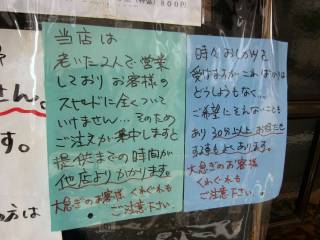 800円
当店は
老いた2人で営業
しており お客様の
スピードに全くついて
いけません… そのため
ご注文が集中しますと
提供までの時間が
他店よりかかります。
大急ぎのお客様 くれぐれも
ご注意下さい。
時々おしかりを
受けますが…こればかりは
どうしようもなく…
ご希望にそえないことも
あり 30分以上お待たせ
することもあります…
大急ぎのお客様
くれぐれも
ご注意下さい。
せん。
す。
の方は